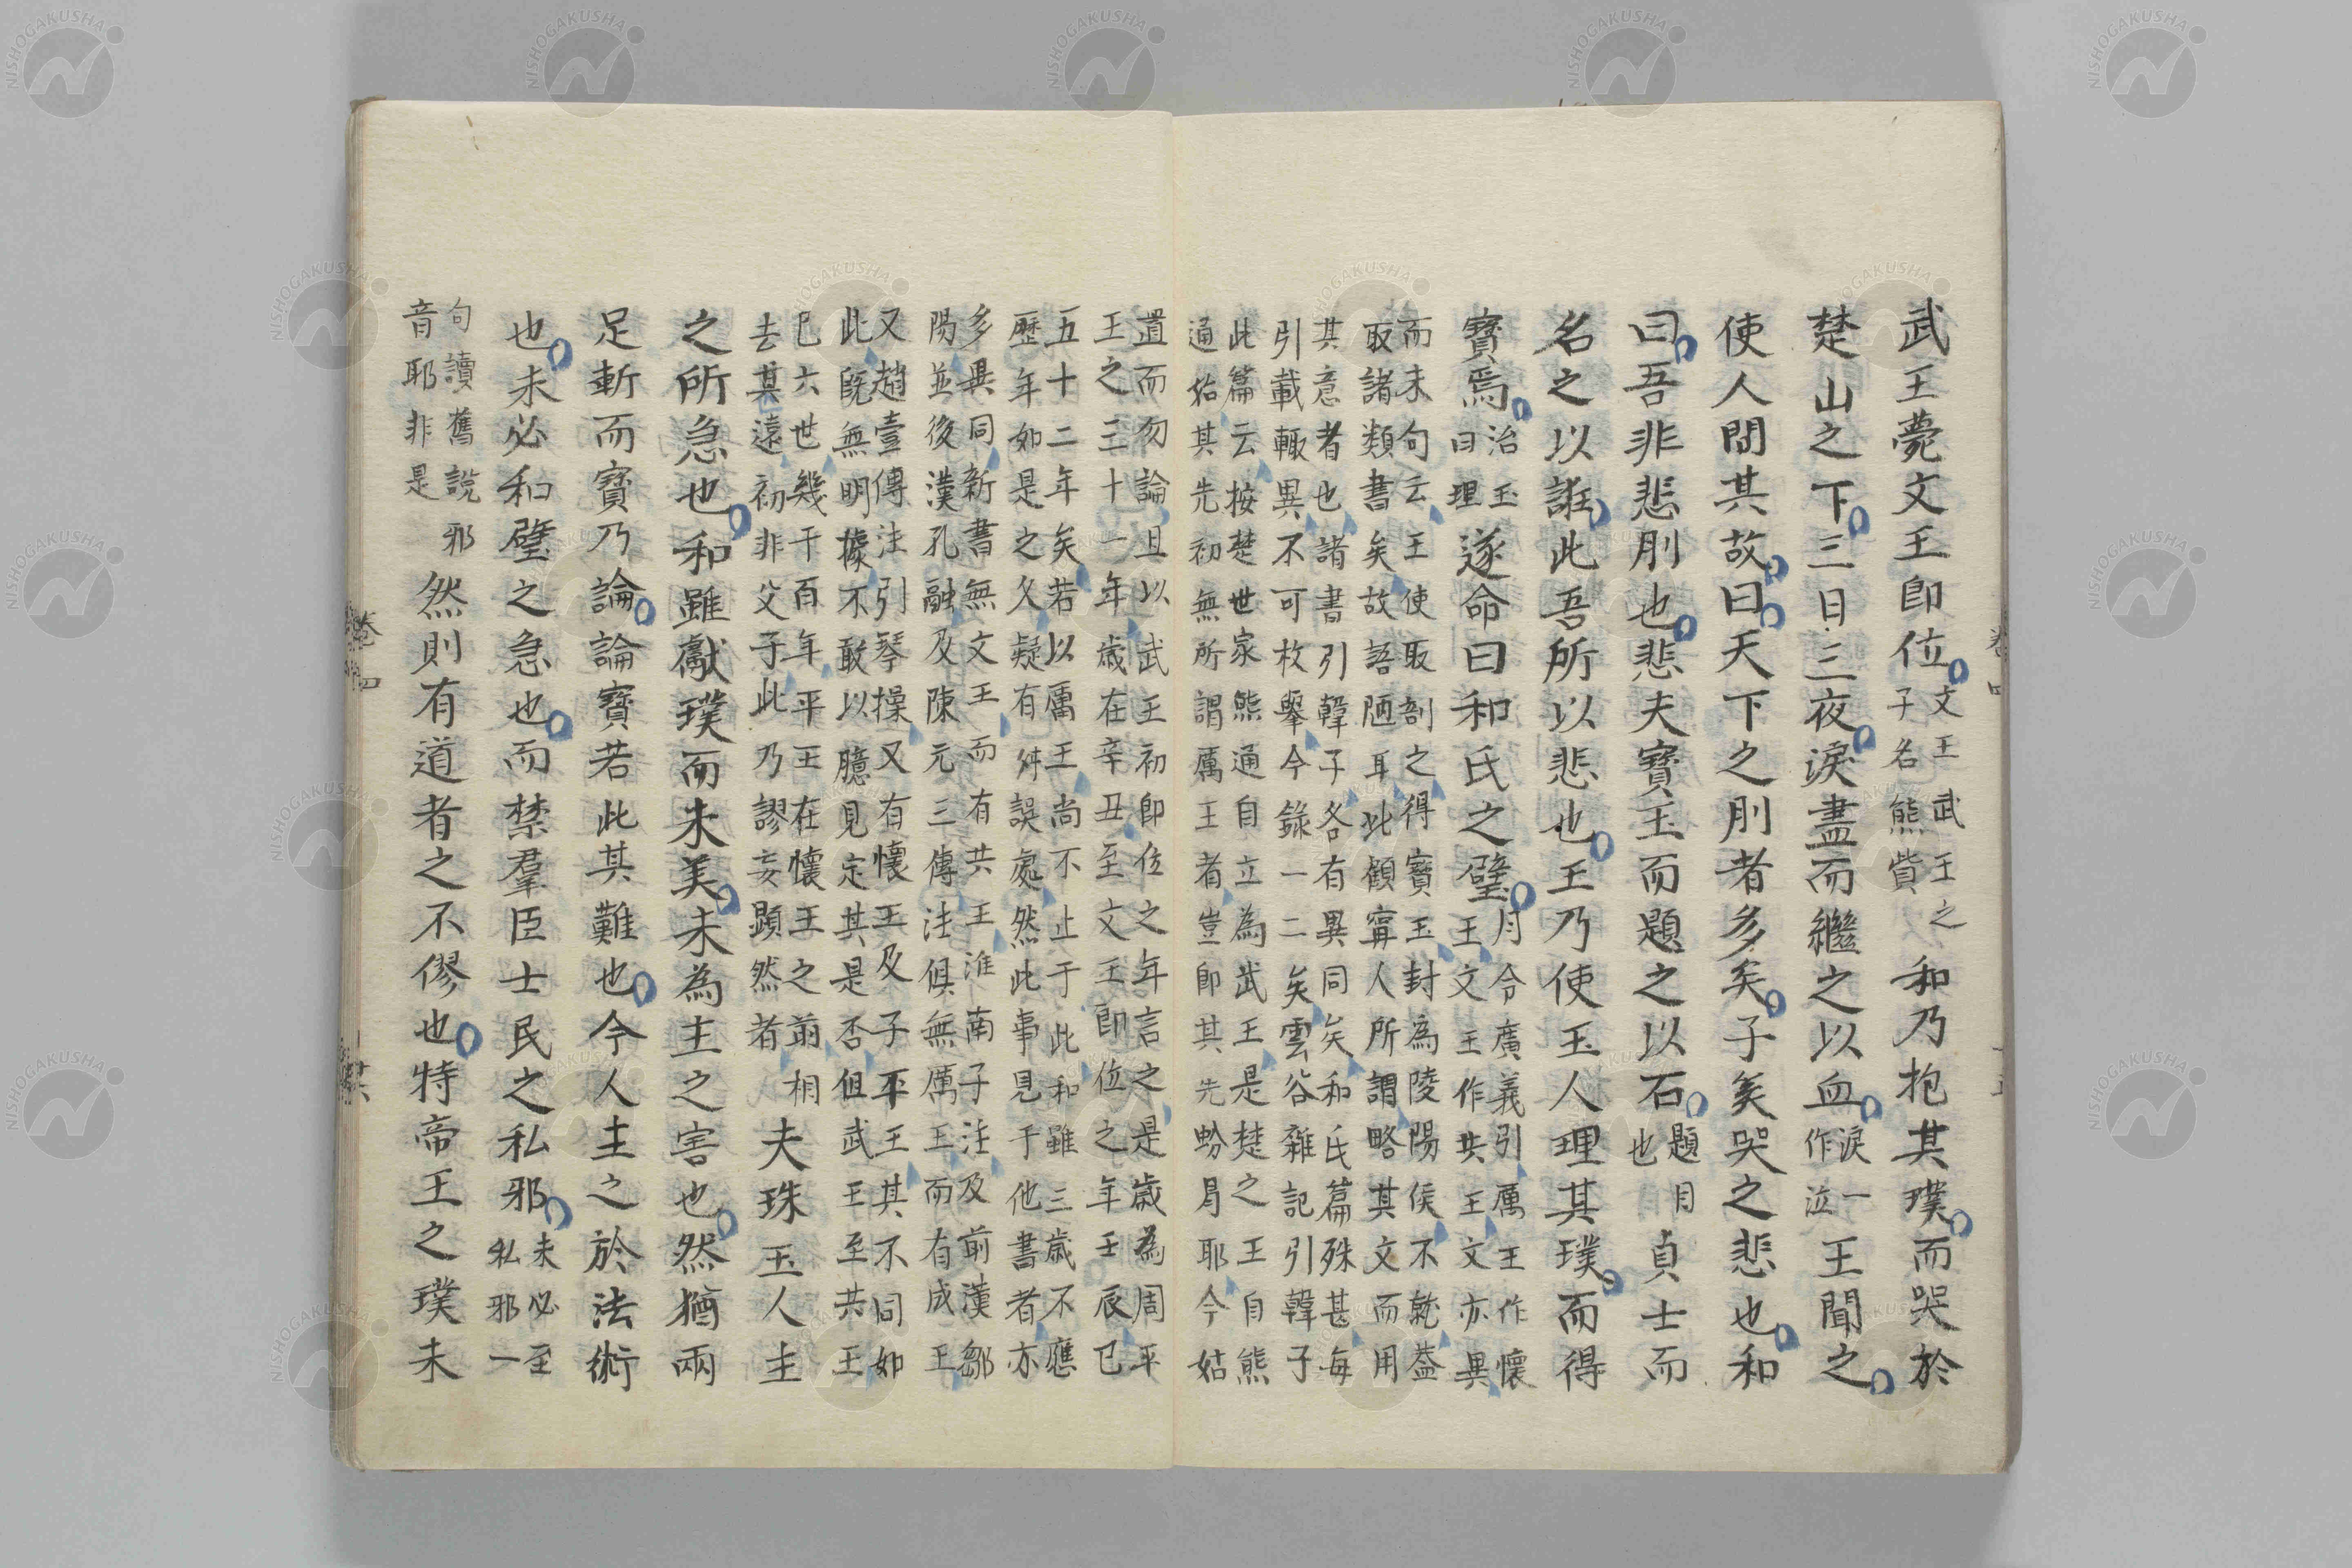 武王薨文王即位文王武王之
子名熊貲和乃抱其璞而哭於
楚山之下三日三夜淚盡而繼之以血淚一
作泣王聞之
使人問其故曰天下之刖者多矣子奚哭之悲也和
曰吾非悲刖也悲夫寶玉而題之以石題目
也貞士而
名之以誑此吾所以悲也王乃使玉人理其璞而得
寶焉治玉
曰理遂命曰和氏之璧月令廣義引厲王作懷
王文王作共王文亦異
而末句云王使取剖之得寶玉封為陵陽侯不就蓋
取諸類書矣故語陋耳此顧甯人所謂略其文而用
其意者也諸書引韓子各有異同矣和氏篇殊甚每
引載輒異不可枚舉今錄一二矣雲谷雜記引韓子
此篇云按楚世家熊通自立為武王是楚之王自熊
通始其先初無所謂厲王者豈即其先蚡冒耶今姑
置而勿論且以武王初即位之年言之是歲為周平
王之三十一年歲在辛丑至文王即位之年壬辰已
五十二年矣若以厲王尚不止于此和雖三歲不應
歷年如是之久疑有舛誤處然此事見于他書者亦
多異同新書無文王而有共王淮南子注及前漢鄒
陽並後漢孔融及陳元三傳注俱無厲王而有成王
又趙壹傳注引琴操又有懷王及子平王其不同如
此既無明據不敢以臆見定其是否但武王至共王
已六世幾千百年平王在懷王之前相
去其遠初非父子此乃謬妄顯然者夫珠玉人主
之所急也和雖獻璞而未美未為主之害也然猶兩
足斬而寶乃論論寶若此其難也今人主之於法術
也未必和璧之急也而禁羣臣士民之私邪未必至
私邪一
句讀舊說邪
音耶非是然則有道者之不僇也特帝王之璞未
卷四